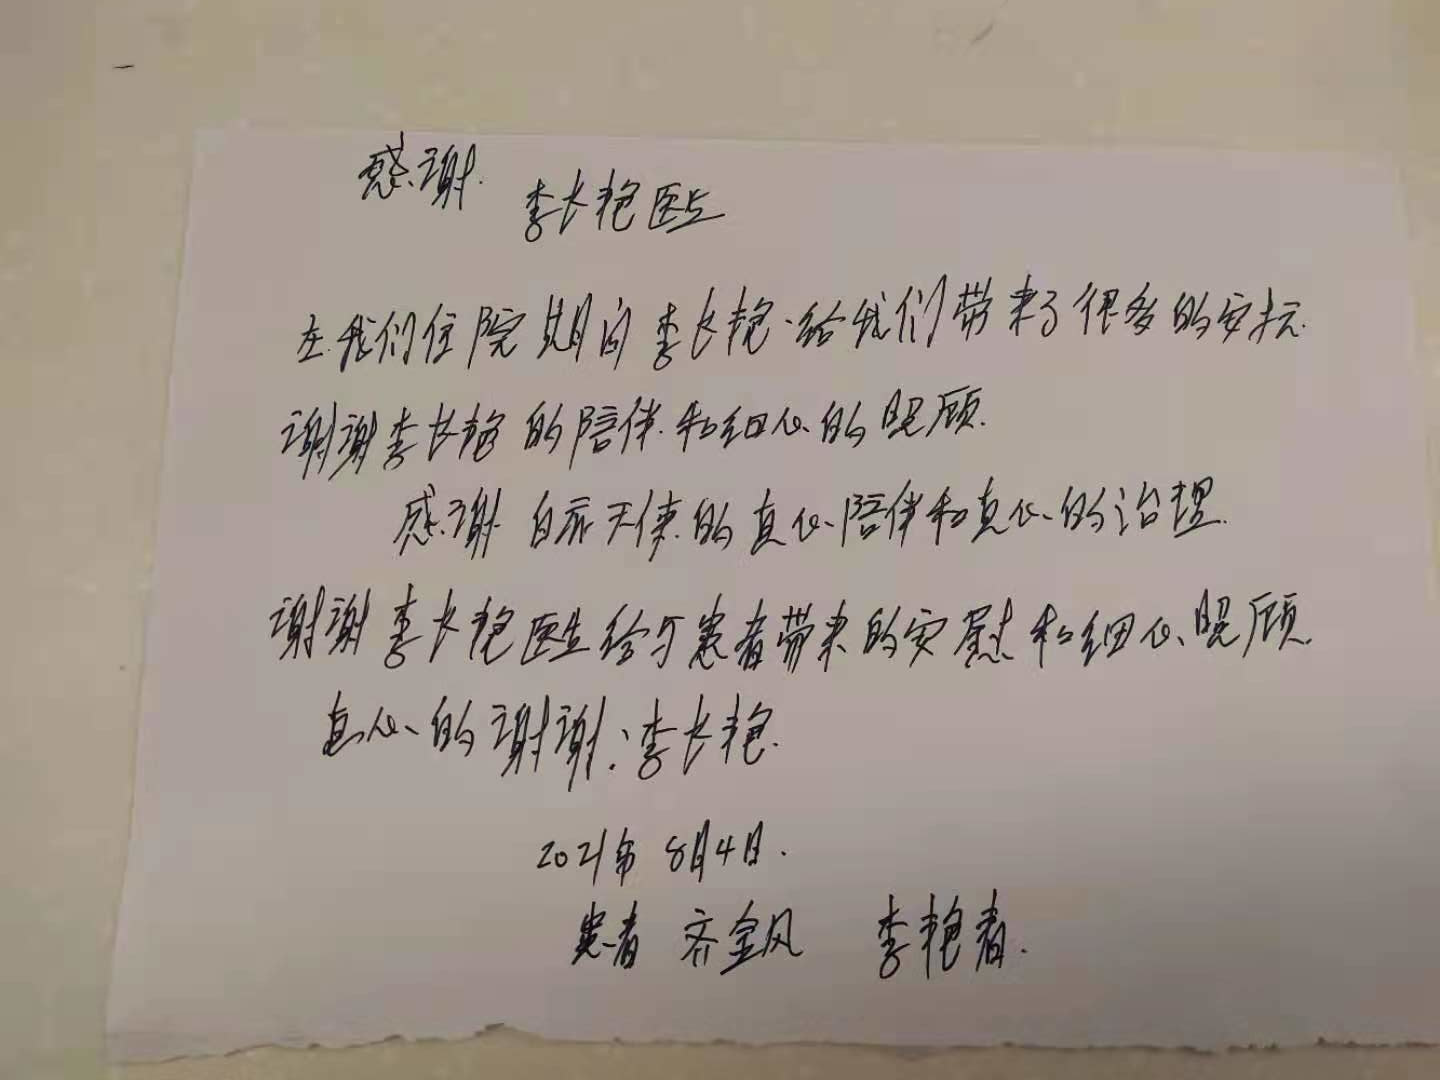 感谢.
李长艳医生
在我们住院期间李长艳给我们带来了很多的安抚.
谢谢李长艳的陪伴和细心的照顾.
感谢白衣天使的真心陪伴和真心的治理.
谢谢李长艳医生给予患者带来的安慰和细心照顾.
真心的谢谢:李长艳.
2021年8月4日.
患者 齐金凤 李艳春.